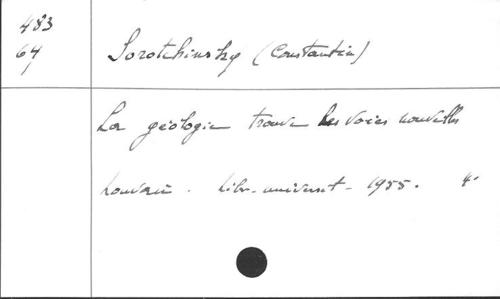 483
64
Sorotchinsky (Constantin)
La géologie trouve des voies nouvelles
Louvain. Libr. universit. 1955. 4°